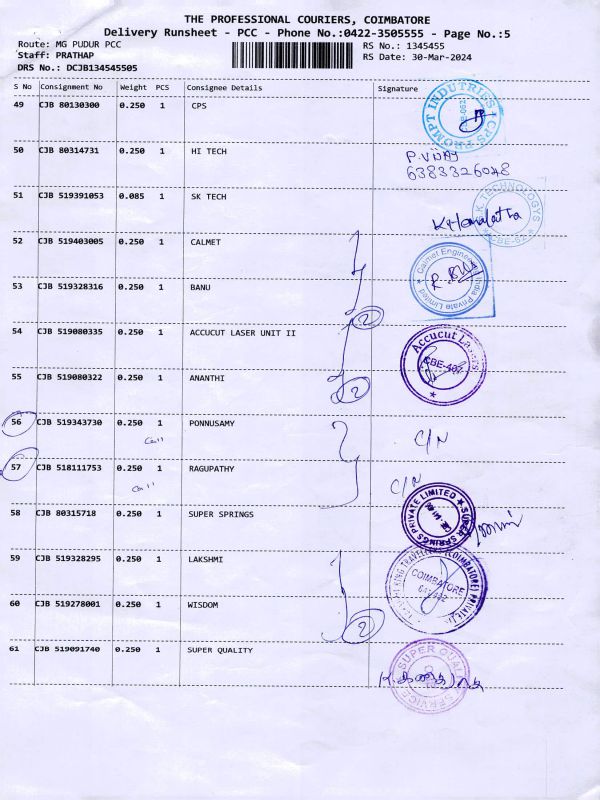 THE PROFESSIONAL COURIERS, COIMBATORE
Delivery Runsheet - PCC - Phone No.:0422-3505555 - Page No.:5
Route: MG PUDUR PCC
RS No.: 1345455
Staff: PRATHAP
RS Date: 30-Mar-2024
DRS No.: DCJB134545505
S No Consignment No Weight PCS Consignee Details Signature
49 CJB 80130300 0.250 1 CPS
PROMPT INDUTRIES CPS
50 CJB 80314731 0.250 1 HI TECH
P.VIJAY
6383326048
51 CJB 519391053 0.085 1 SK TECH
K. TECHNOLOGYS
CBE-62
K Hemalatha
52 CJB 519403005 0.250 1 CALMET
Calmet Engineer India Private Limited
53 CJB 519328316 0.250 1 BANU
2
54 CJB 519080335 0.250 1 ACCUCUT LASER UNIT II
Accucut Lasers
CBE-407
55 CJB 519080322 0.250 1 ANANTHI
2
56 CJB 519343730 0.250 1 PONNUSAMY
Call
C/N
57 CJB 518111753 0.250 1 RAGUPATHY
Call
C/N
58 CJB 80315718 0.250 1 SUPER SPRINGS
SUPER SPRINGS PRIVATE LIMITED
59 CJB 519328295 0.250 1 LAKSHMI
COIMBATORE
60 CJB 519278001 0.250 1 WISDOM
2
61 CJB 519091740 0.250 1 SUPER QUALITY
SUPER QUALITY SERVICE